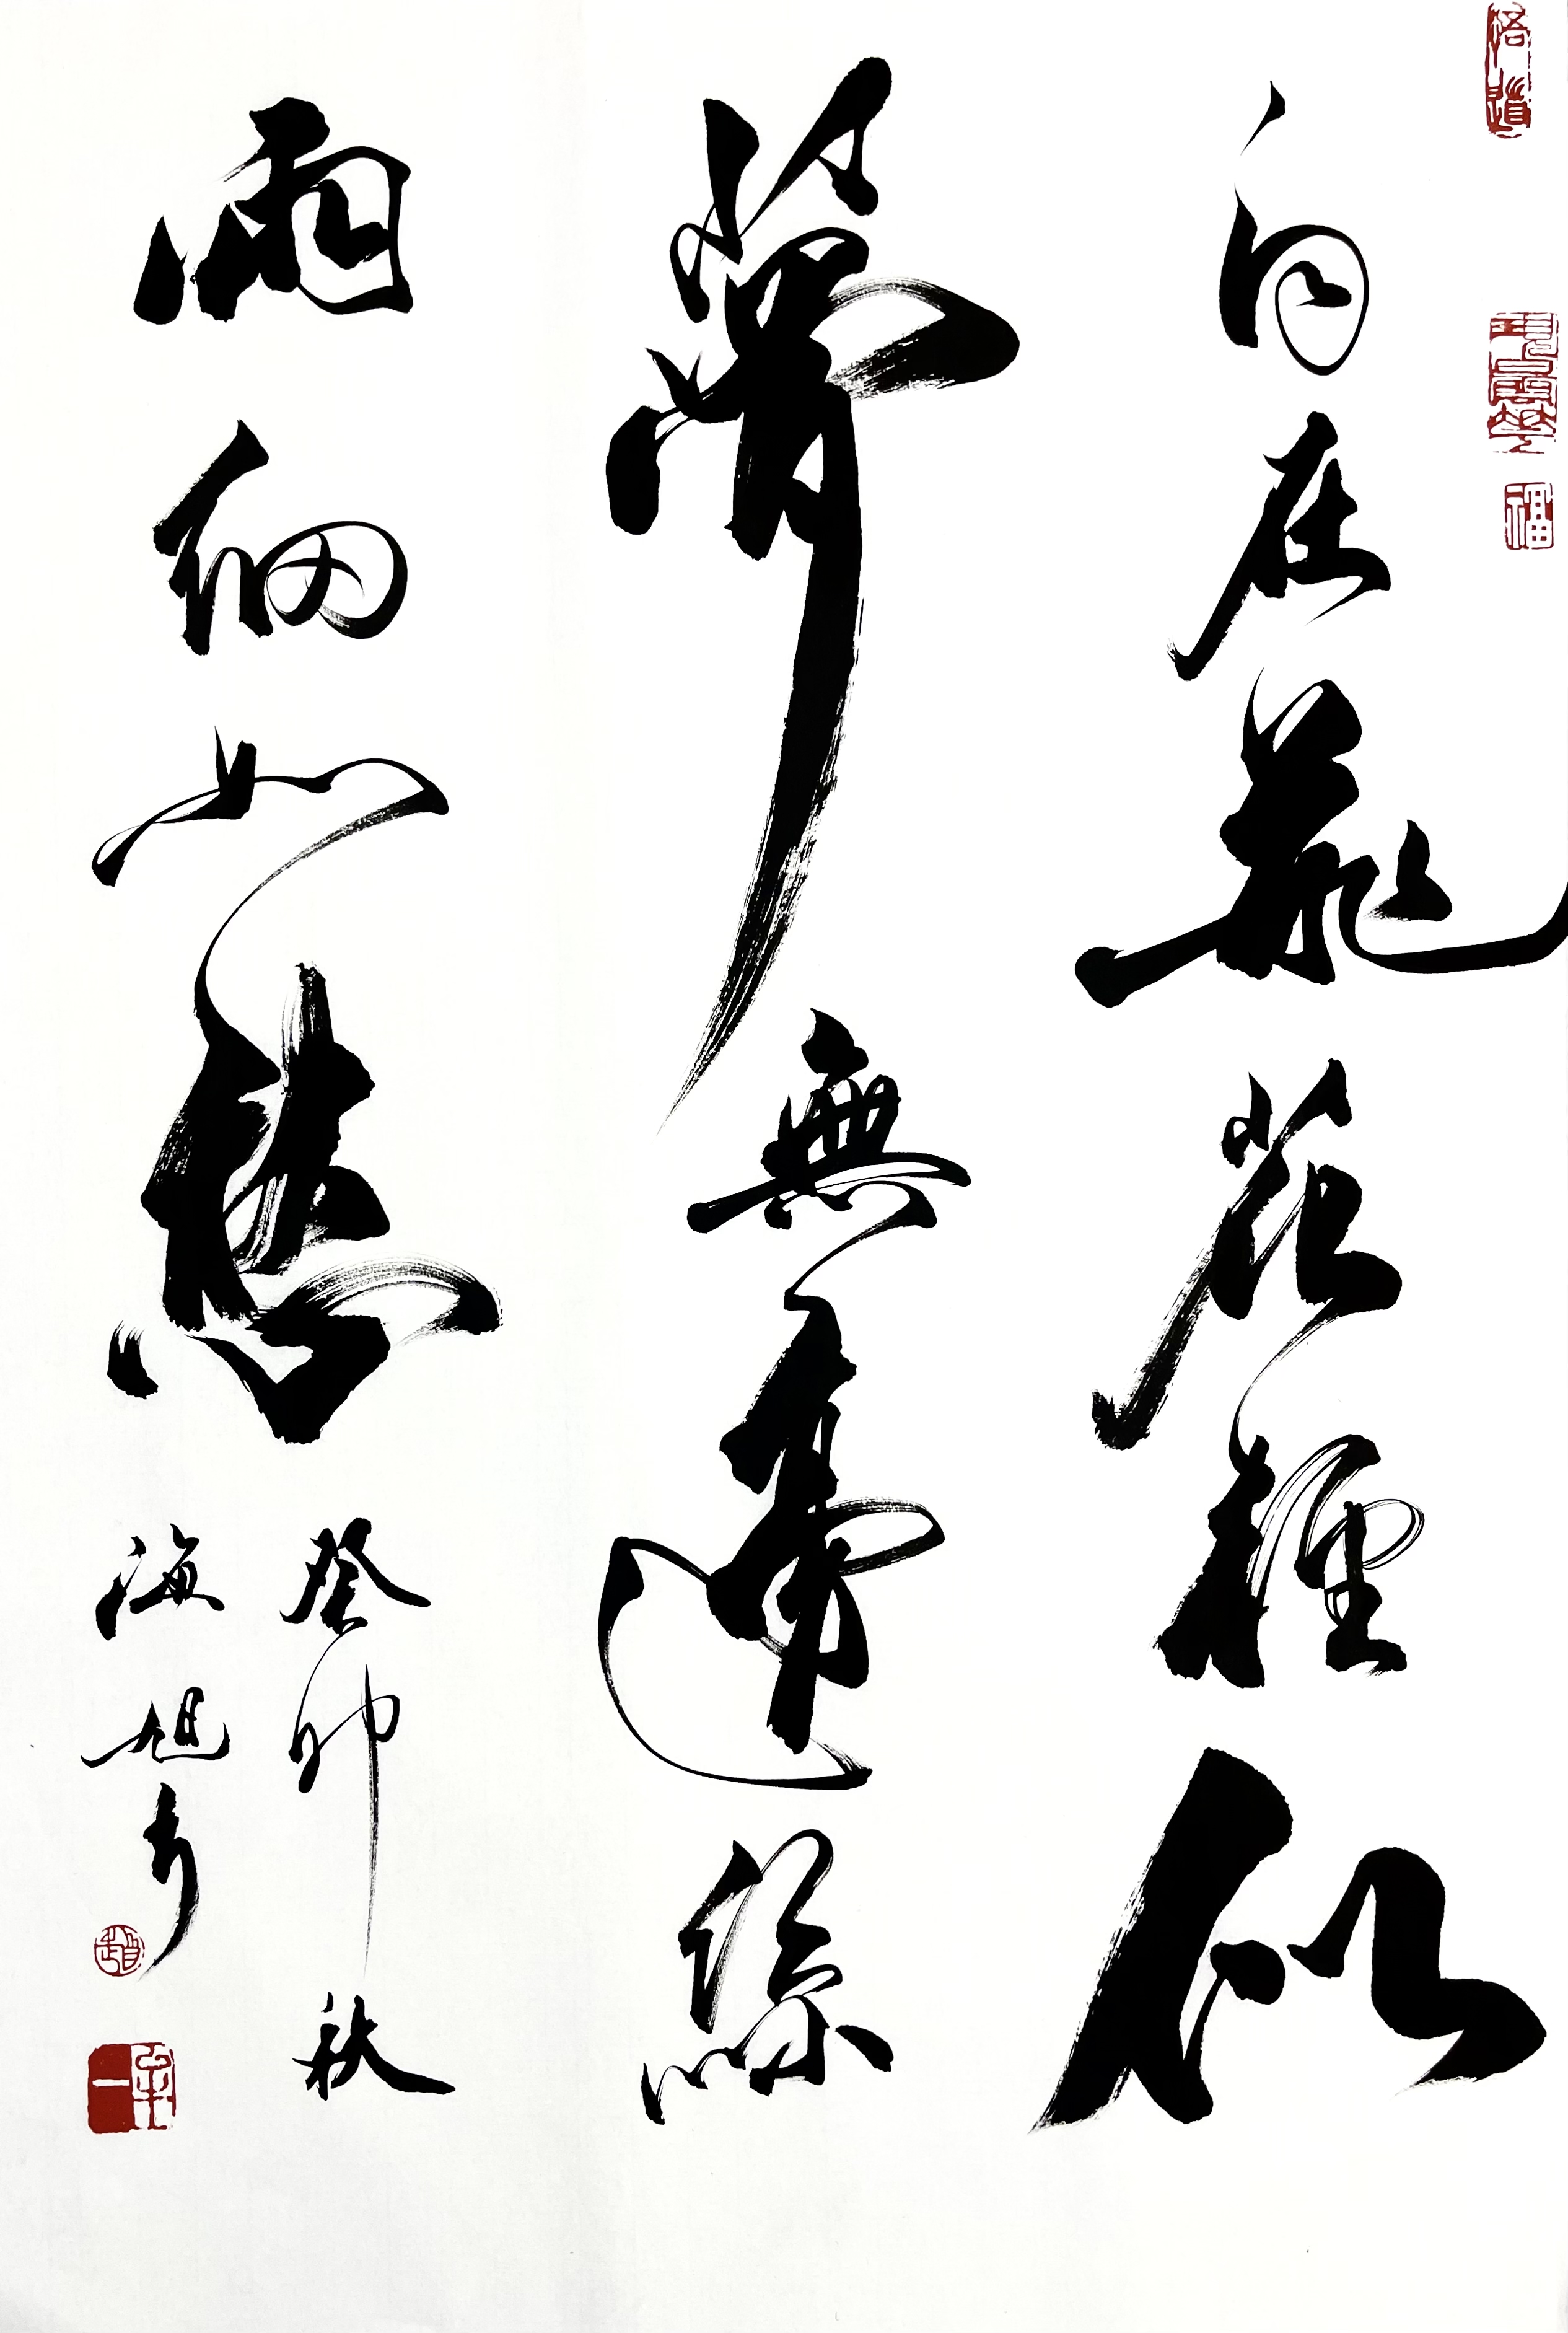 自在飛花輕似
夢無邊絲
雨細如愁
癸卯秋
海旭書
福